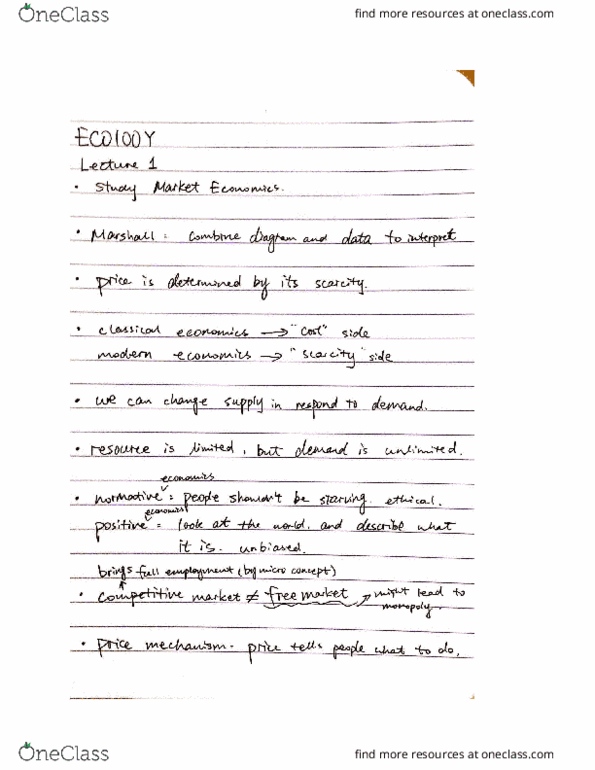 OneClass
find more resources at oneclass.com
ECO100Y
Lecture 1
• Study Market Economics.
• Marshall : combine diagram and data to interpret
• price is determined by its scarcity.
• classical economics → "cost" side
modern economics → "scarcity" side
• we can change supply in respond to demand.
• resource is limited, but demand is unlimited.
economics
• normative : people shouldn't be starving. ethical.
economics
positive = look at the world. and describe what
it is. unbiased.
brings full employment (by micro concept)
• competitive market ≠ free market → might lead to
monopoly.
• price mechanism. price tells people what to do,
OneClass
find more resources at oneclass.com